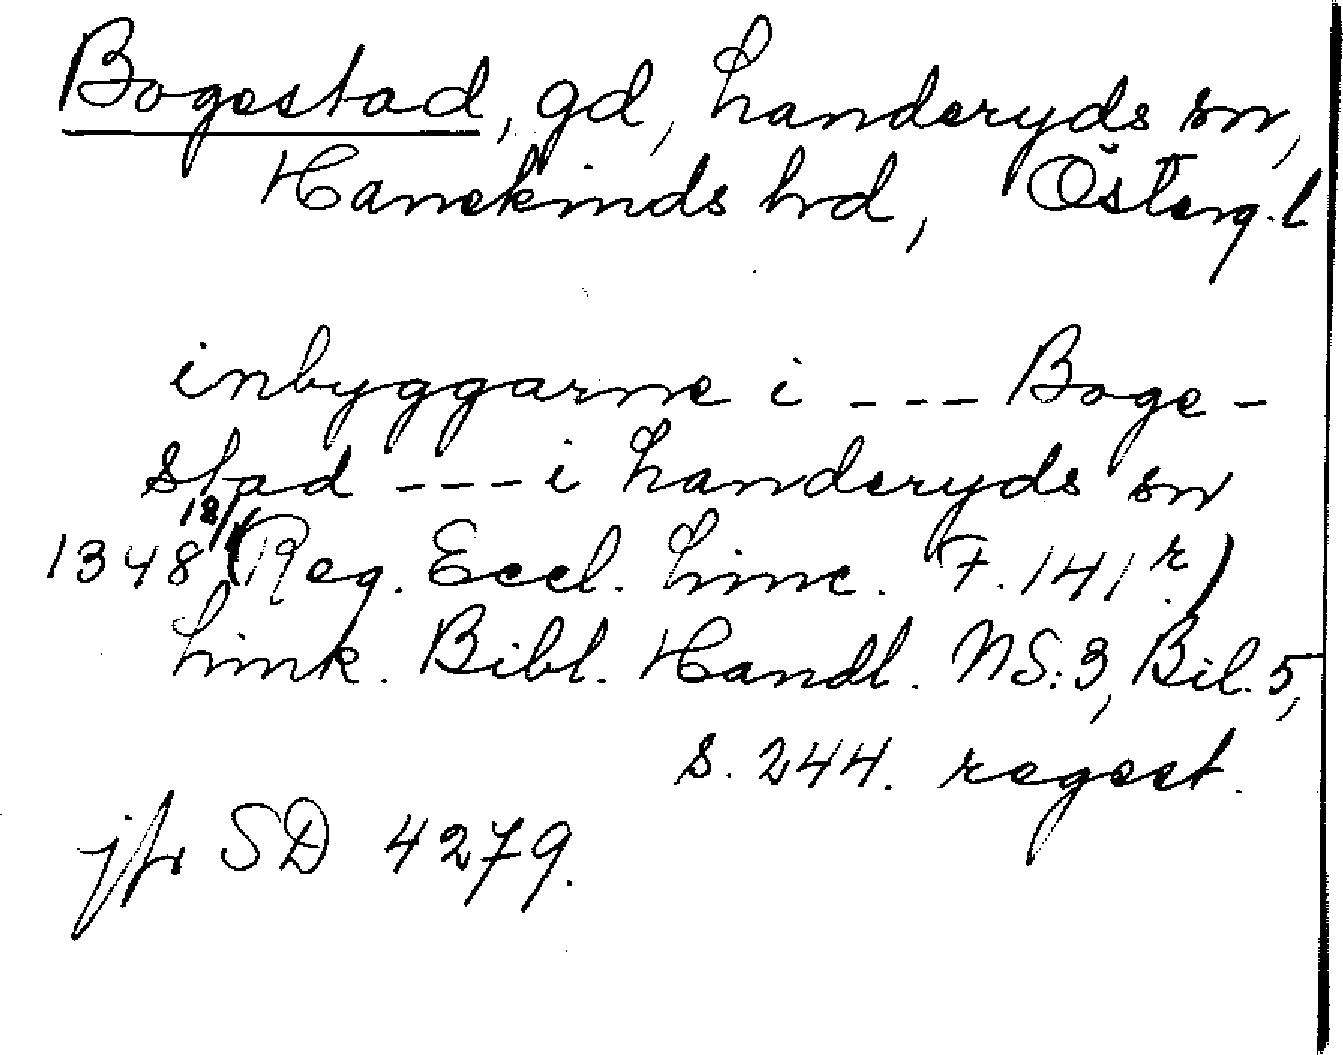 Bogestad, gd, Landeryds sn,
Hanekinds hd, Österg.l
inbyggarne i --- Boge-
stad --- i Landeryds sn
1348 18/1 (Reg. Eccl. Linc. F. 141 r.)
Link. Bibl. Handl. NS:3, Bil. 5,
s. 244. regest.
jfr SD 4279.